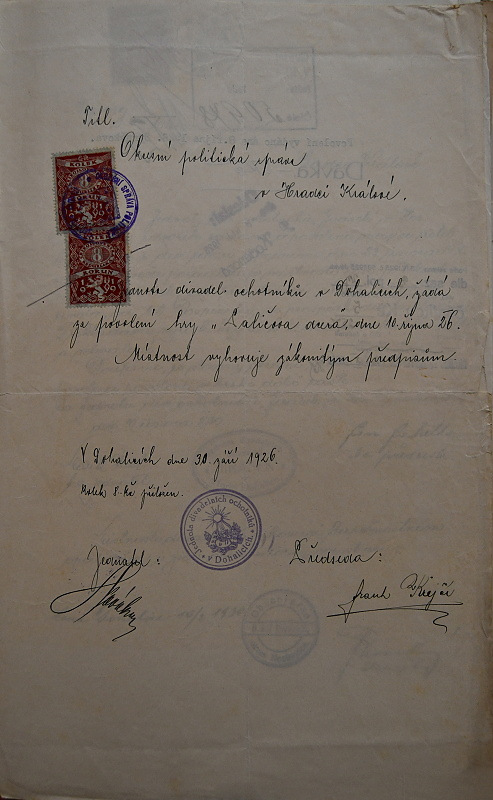 Titl.
Okresní politická správa
v Hradci Králové.
KOLEK
8
KORUN
Jednota divadel. ochotníků v Dohalicích, žádá
za povolení hry „Paličova dcera", dne 10. října 26.
Místnost vyhovuje zákonitým předpisům.
V Dohalicích dne 30. září 1926.
Kolek 8-Kč přiložen.
Jednota divadelních ochotníků
v Dohalicích.
Jednatel:
Předseda:
Frant Krejčí